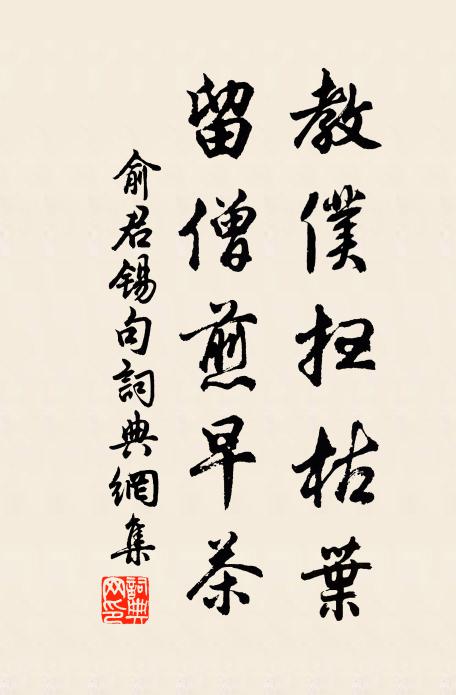 教僕扫枯葉
留僧煎早茶
俞君錫句詞典網集
詞典网印